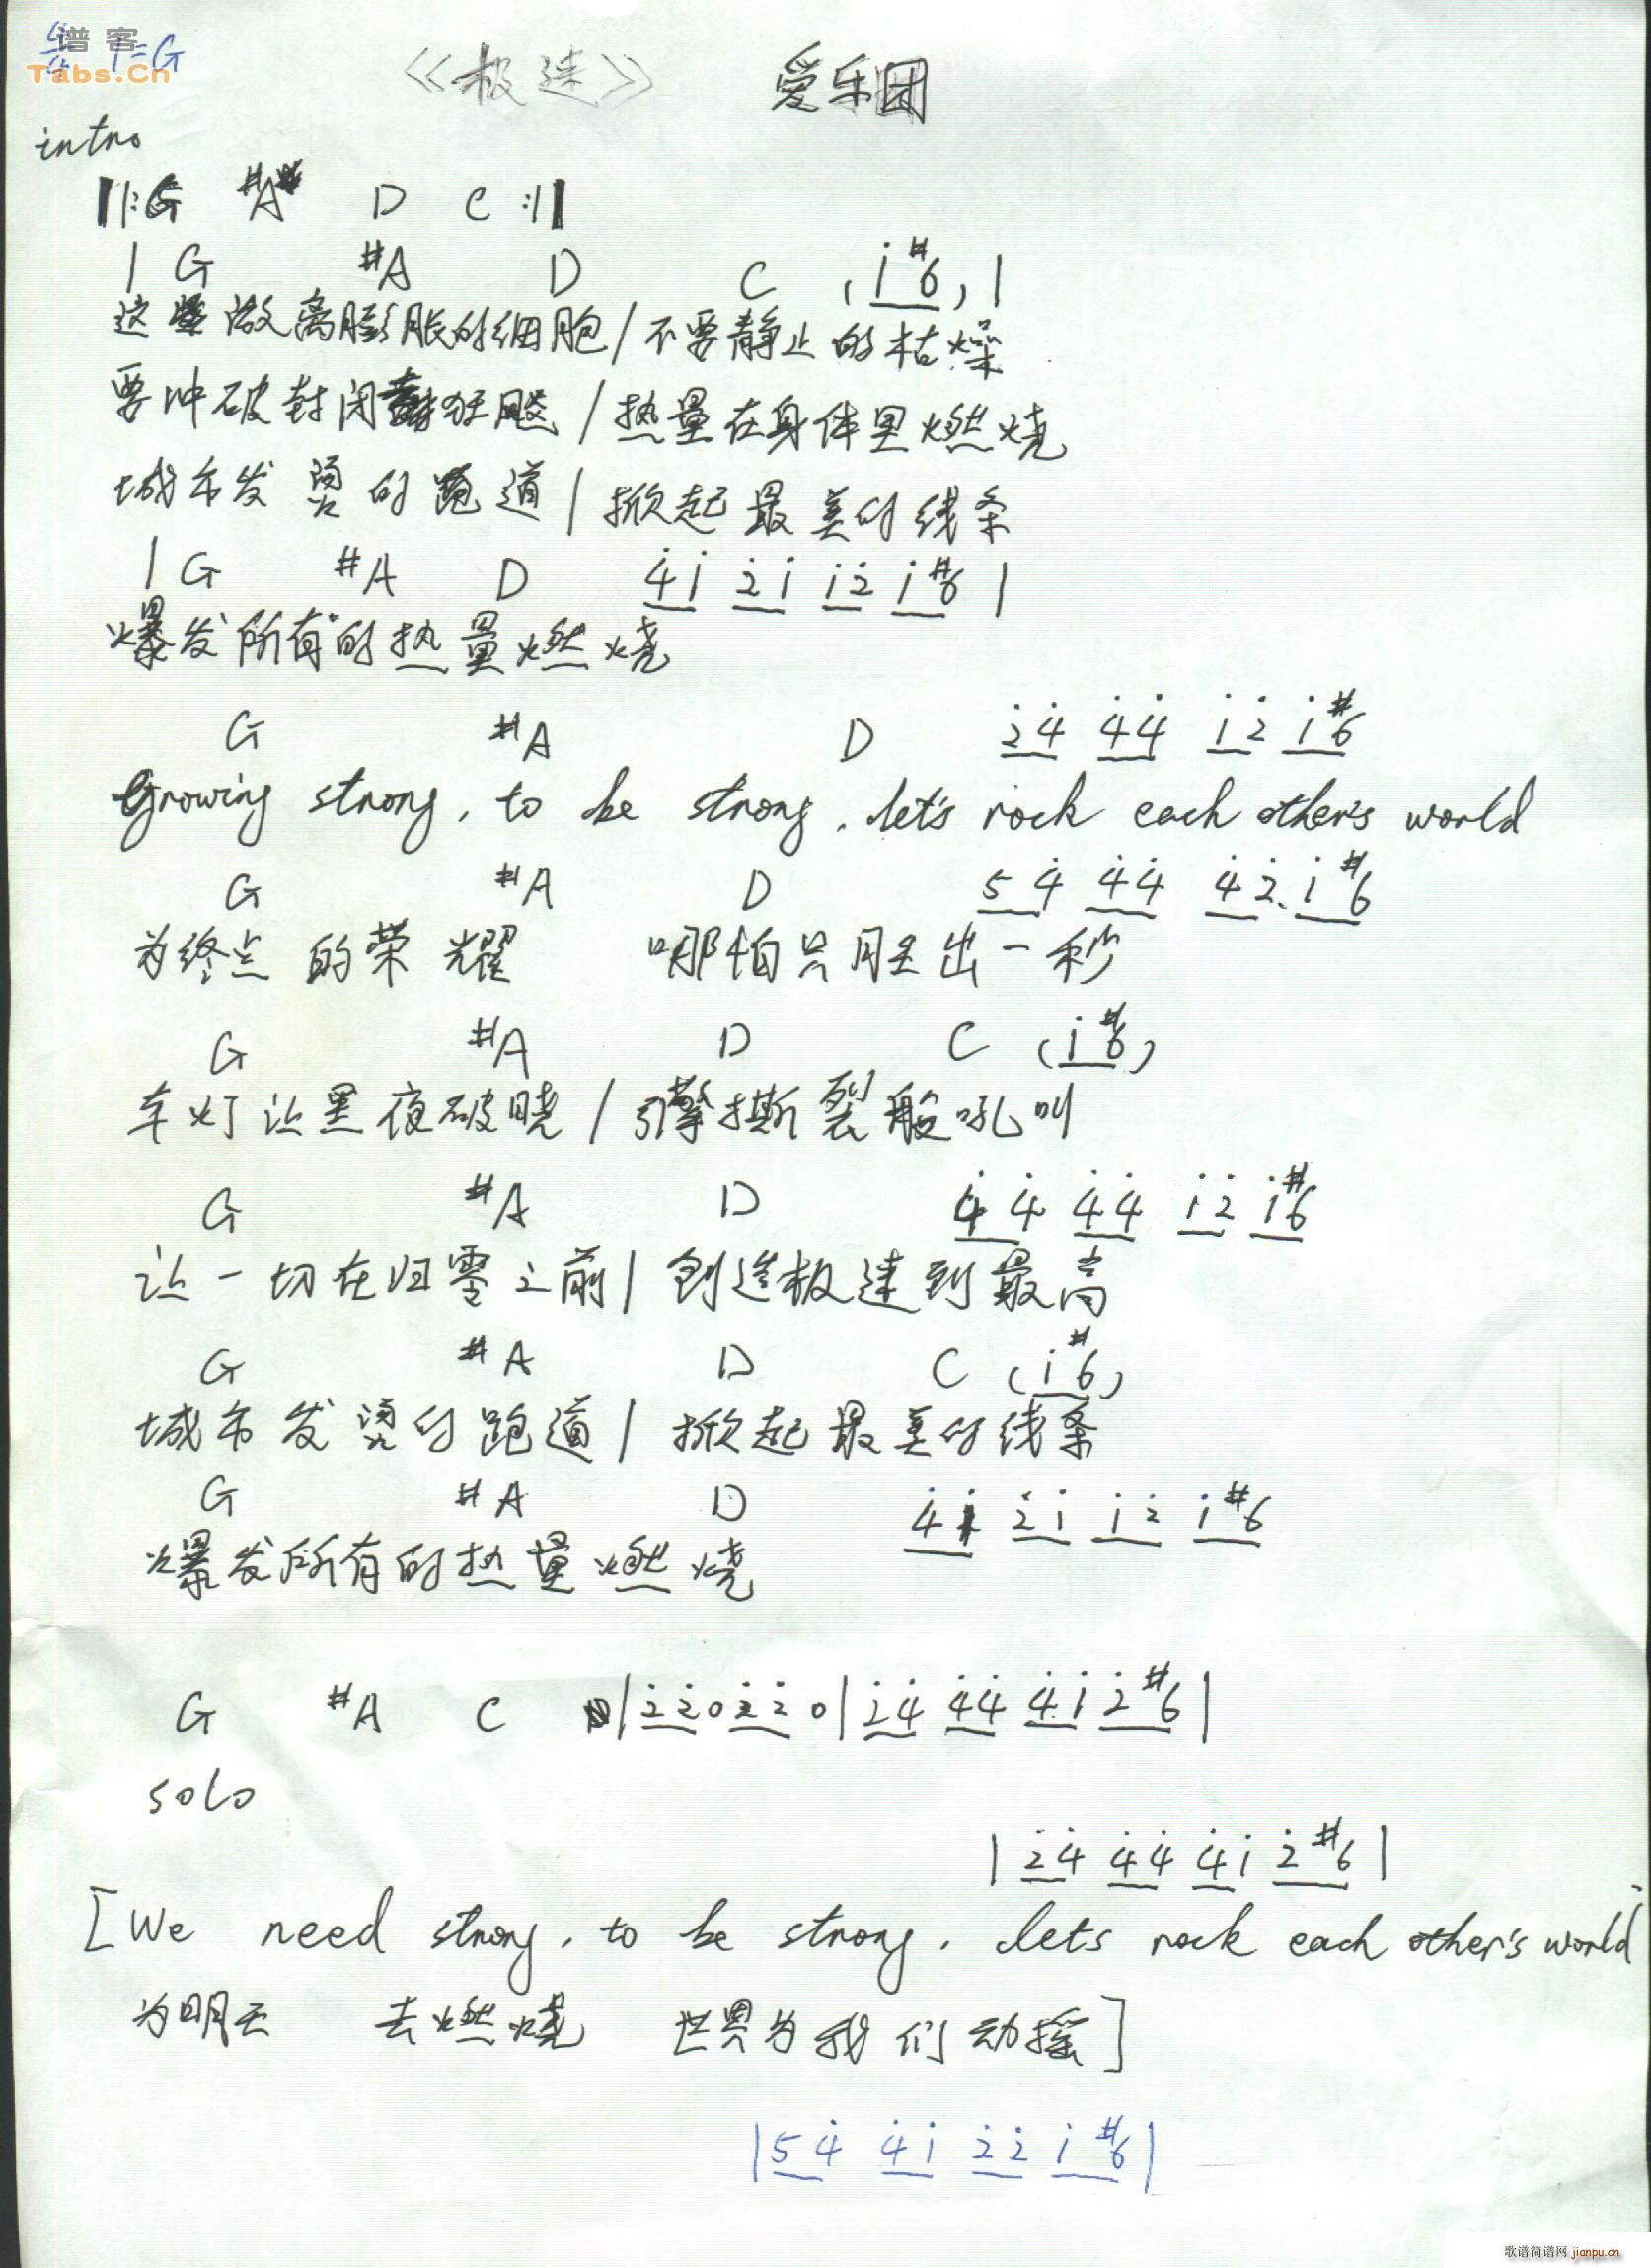 谱客
Tabs.Cn
4/4 1=G
《极速》 爱乐团
intro
‖:G #A D C :‖
| G #A D C (i #6) |
这些做离膨胀的细胞/不要静止的枯燥
要冲破封闭 狂飚/热量在身体里燃烧
城市发烫的跑道/掀起最美的线条
| G #A D 4̇i 2̇i i2̇ i#6 |
爆发所有的热量燃烧
G #A D 2̇4̇ 4̇4̇ i2̇ i#6
Growing strong, to be strong, let's rock each other's world
G #A D 54̇ 4̇4̇ 4̇2̇ i#6
为终点的荣耀 哪怕只胜出一秒
G #A D C (i#6)
车灯让黑夜破晓/引擎撕裂般吼叫
G #A D 4̇4̇ 4̇4̇ i2̇ i#6
让一切在归零之前/创造极速到最高
G #A D C (i#6)
城市发烫的跑道/掀起最美的线条
G #A D 4̇i 2̇i i2̇ i#6
爆发所有的热量燃烧
G #A C |2̇2̇0 2̇2̇0|2̇4̇ 4̇4̇ 4̇i 2̇#6|
solo
|2̇4̇ 4̇4̇ 4̇i 2̇#6|
[We need strong, to be strong, lets rock each other's world
为明天 去燃烧 世界为我们动摇]
|54̇ 4̇i 2̇2̇ i#6|
歌谱简谱网 jianpu.cn